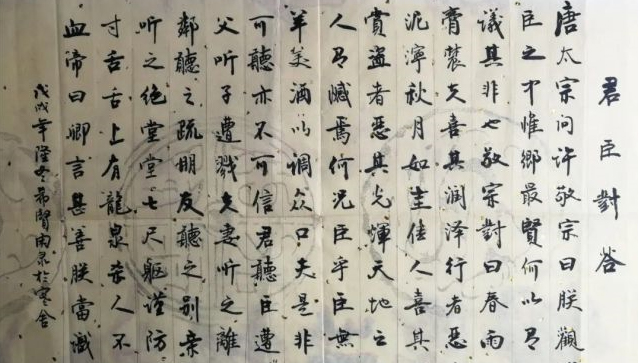 君臣對答
唐太宗问许敬宗曰朕觀
臣之中惟卿最賢何以有
議其非也敬宗對曰春雨
膏農夫喜其润泽行者恶
泥濘秋月如圭佳人喜其
賞盗者恶其光輝天地之
人有憾焉何況臣乎臣無
羊美酒以调众口夫是非
可聽亦不可信君聽臣遭
父听子遭戮夫妻听之離
鄰聽之疏朋友聽之别亲
听之绝堂堂七尺軀谨防
寸舌舌上有龍泉杀人不
血帝曰卿言甚善朕當識
戊戌年隆冬希賢南京於寒舍